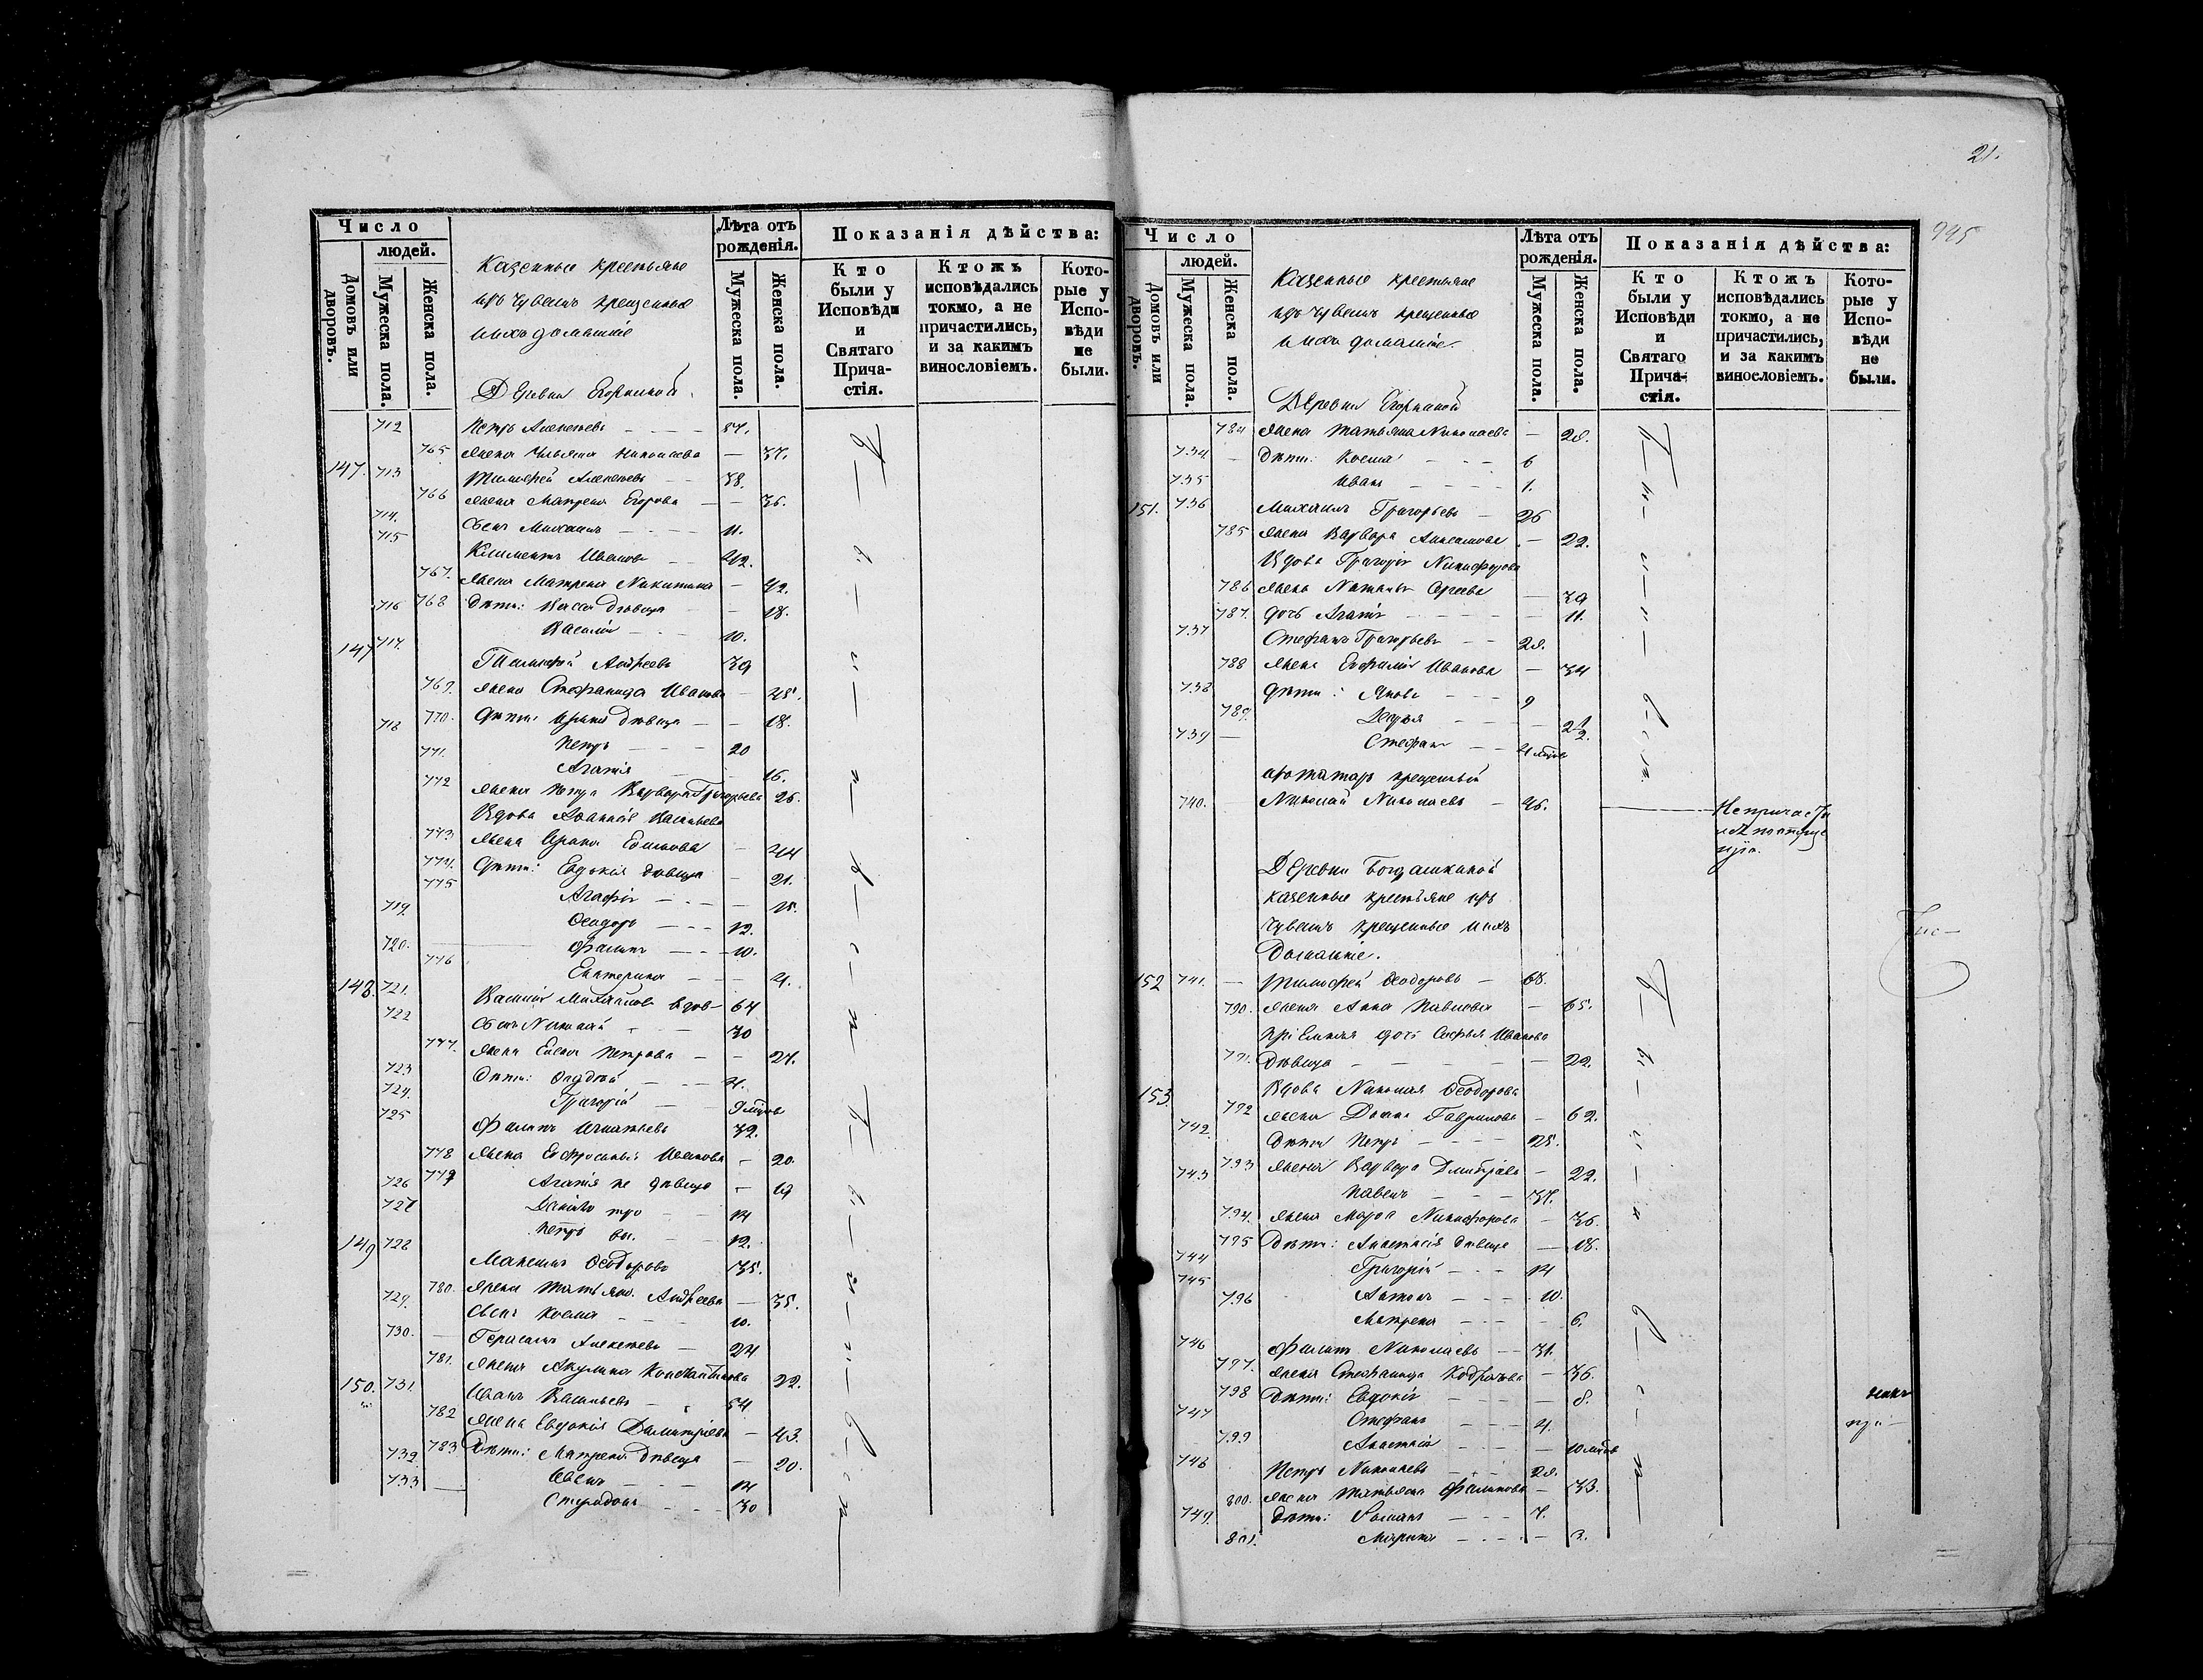 21.
995
Число
людей.
Домовъ или дворовъ.
Мужеска пола.
Женска пола.
Казенные крестьяне
изъ чувашъ крещенные
и ихъ домашніе
Деревни Егоркиной.
Лѣта отъ рожденія.
Мужеска пола.
Женска пола.
Показанія дѣйства:
Кто были у Исповѣди и Святаго Причастія.
Ктожъ исповѣдались токмо, а не причастились, и за какимъ винословіемъ.
Которые у Исповѣди не были.
712 Петръ Алексѣевъ
765 жена Ульяна Николаева — 37.
147. 713 Тимофей Алексѣевъ 38.
766 жена Матрена Егорова — 36.
714. Сынъ Михаилъ 11.
715 Климентъ Ивановъ 42.
767. жена Матрена Никитина — 42.
768 Дѣти: Васса дѣвица — 18.
716 Василій 10.
147 717. Тимофей Андреевъ 39
769. жена Стефанида Иванова — 45.
770. Дѣти: Ирина дѣвица — 18.
718 Петръ 20
771. Агапія 16.
772 жена Петра Варвара Григорьева 26.
Вдова Аѳанасія Васильева
773 жена Ирина Ефимова — 44
774. Дѣти: Евдокія дѣвица — 21.
775 Агафія — 15.
719. Ѳеодоръ 12.
720. Филипъ 10.
776 Екатерина — 4.
148. 721. Василій Михайловъ вдов— 64
722 Сынъ Николай 30
777. жена Елена Петрова — 27.
723 Дѣти: 4.
724. Григорій 9 мцов
725 Филипъ Игнатьевъ 32.
778 жена Евфросинія Иванова — 20.
779 Агапія дѣвица — 19
726 14
727 Петръ 12.
149 728 Максимъ Ѳеодоровъ 35.
780. жена Татьяна Андреева — 35.
729. Сынъ Косма 10.
730. Герасимъ Алексѣевъ 24
781. жена Акулина Константинова 22.
150. 731. Иванъ Васильевъ 54
782 жена Евдокія Димитріева — 43.
783 Дѣти: Матрена дѣвица — 20.
732. 14
733 Спиридонъ 30
Число
людей.
Домовъ или дворовъ.
Мужеска пола.
Женска пола.
Казенные крестьяне
изъ чувашъ крещенные
и ихъ домашніе.
Деревни Егоркиной
Лѣта отъ рожденія.
Мужеска пола.
Женска пола.
Показанія дѣйства:
Кто были у Исповѣди и Святаго Причастія.
Ктожъ исповѣдались токмо, а не причастились, и за какимъ винословіемъ.
Которые у Исповѣди не были.
784 жена Татьяна Николаева — 28.
734 Дѣти: Косма 6
735 Иванъ 1.
151. 736 Михаилъ Григорьевъ 26
785 жена Варвара — 22.
Вдова Григорія Никифорова
786 жена Сергеева — 39
787. дочь Агапія — 11.
737 Стефанъ Григорьевъ 28.
788 жена Евфимія Иванова — 34
738 дѣти: Яковъ 9
789. Дарья — 2½.
739 Стефанъ 4 мцов
изъ татаръ крещеный
740. Николай Николаевъ 46. Непричаст
Деревни Богдашкиной
казенные крестьяне изъ
чувашъ крещенные и ихъ
Домашніе.
152 741. Тимофей Ѳеодоровъ 68.
790. жена Анна Павлова — 65.
пріемная дочь Софья Иванова
791. дѣвица — 22.
153. Вдова Николая Ѳеодорова
792 жена Домна Гаврилова — 62.
742. Дѣти Петръ 25.
793 жена Варвара Дмитріева — 22.
743 Павелъ 37.
794. жена Марѳа Никифорова — 36.
795 Дѣти: Анастасія дѣвица — 18.
744 Григорій 14
745 Антонъ 10.
796 Матрена — 6.
746 Филипъ Николаевъ 31.
797. жена Стефанида — 36.
798 Дѣти: Евдокія — 8.
747 Стефанъ 4.
799 Анастасія — 10 мцов
748 Петръ Николаевъ 28.
800. жена Татьяна Филипова — 33.
749. дѣти: Романъ 7.
801. Марина — 3.